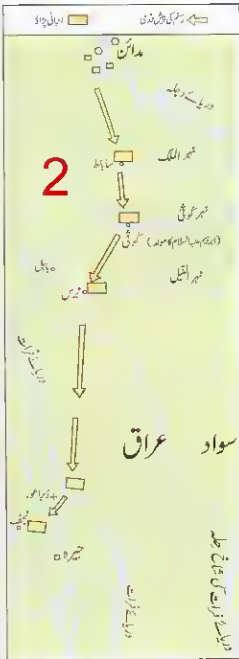 رستم کی پیش قدمی
ایرانی پڑاؤ
مدائن
دریائے دجلہ
نہر الملک
ساباط
2
نہر کوثیٰ
کوثیٰ (ابراہیم علیہ السلام کا مولد)
بابل
نہر النیل
نرس
دریائے فرات
سواد عراق
نجف
حیرہ
دریائے فرات
دریائے فرات کی شاخ